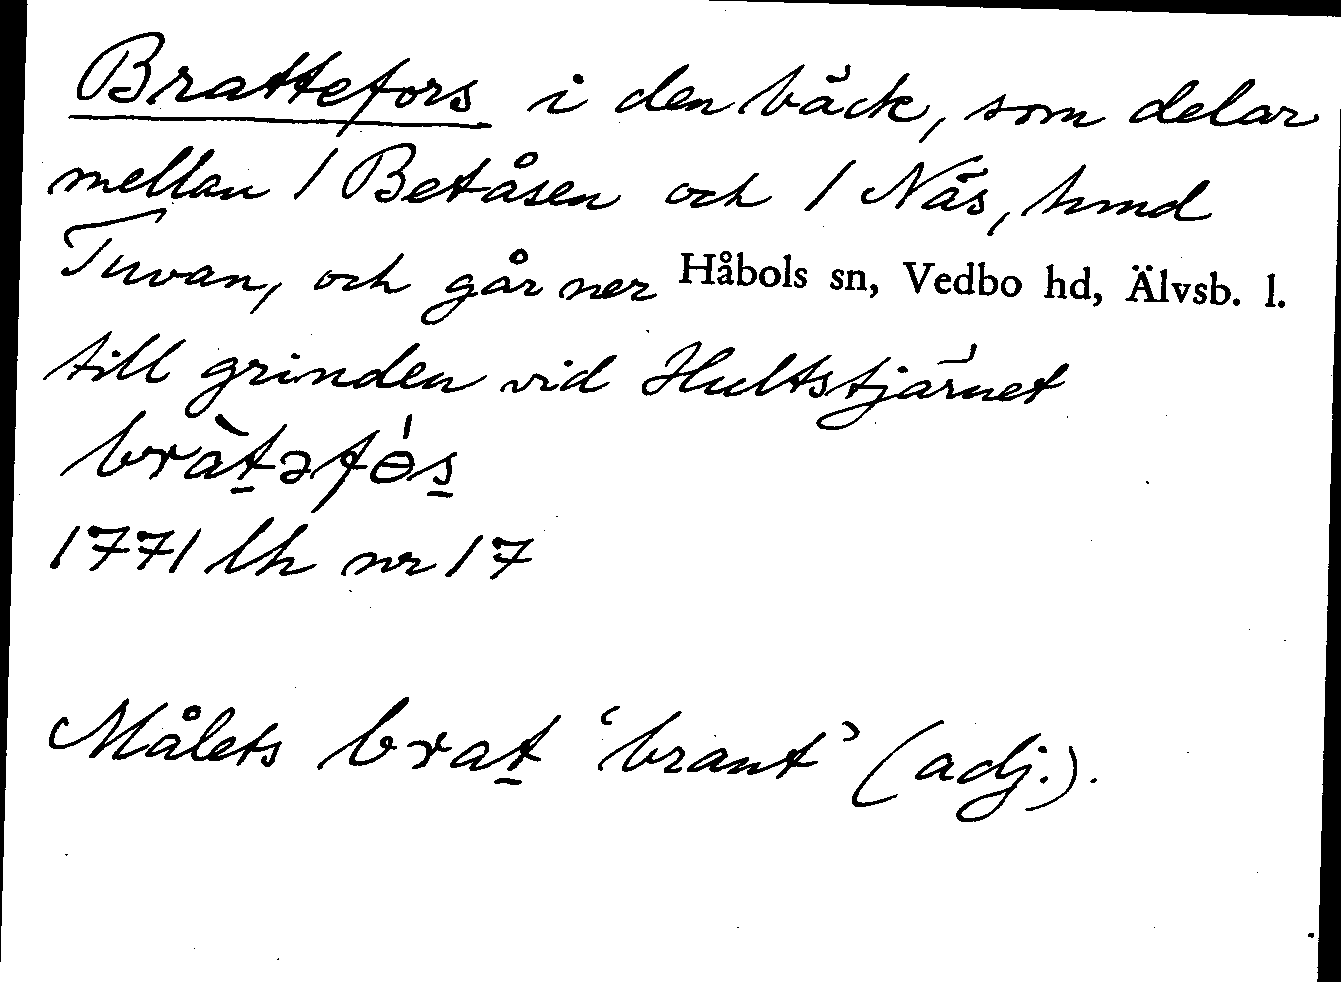 Brattefors i den bäck, som delar
mellan 1 Betåsen och 1 Näs, hmd
Tuvan, och går ner Håbols sn, Vedbo hd, Älvsb. l.
till grinden vid Hultstjärnet
bràt̠əfɵ́s̠
1771 lh nr 17
Målets brat̠ ‘brant’ (adj.).